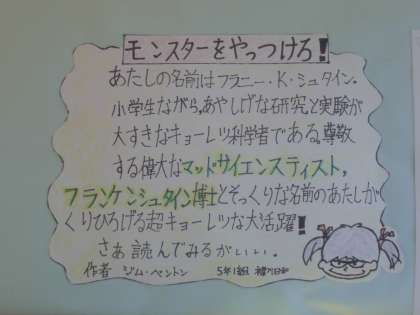 モンスターをやっつけろ!
あたしの名前はフラニー・K・シュタイン。
小学生ながら、あやしげな研究と実験が
大すきなキョーレツ科学者である。尊敬
する偉大なマッドサイエンスティスト、
フランケンシュタイン博士とそっくりな名前のあたしが
くりひろげる超キョーレツな大活躍!
さあ 読んでみるがいい。
作者 ジム・ベントン 5年1組